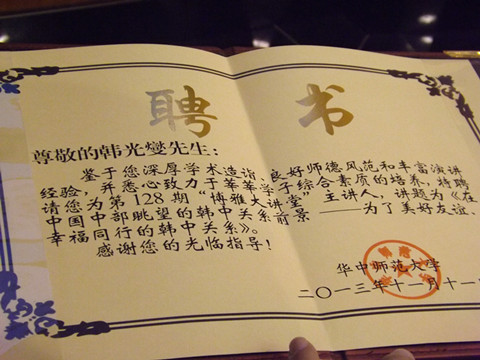 聘书
尊敬的韩光燮先生：
鉴于您深厚学术造诣、良好师德风范和丰富演讲
经验，并悉心致力于莘莘学子综合素质的培养，特聘
请您为第128期“博雅大讲堂”主讲人，讲题为《在
中国中部眺望的韩中关系前景——为了美好友谊、
幸福同行的韩中关系》。
感谢您的光临指导！
华中师范大学
二〇一三年十一月十一